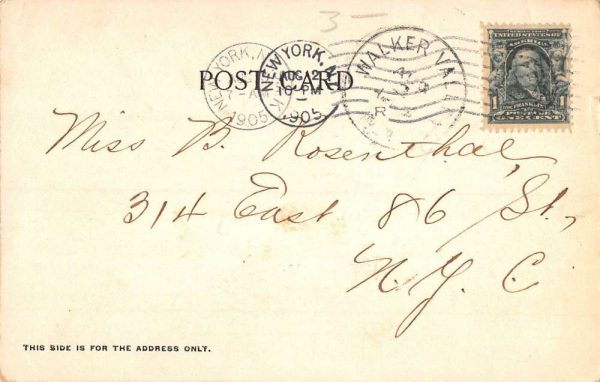 3-
NEW YORK, N.
1905
NEW YORK, N.Y.
AUG 2
10-PM
1905
WALKER VAL
POST CARD
UNITED STATES OF
AMERICA
1 1
ONE CENT
Miss B. Rosenthal,
314 East 86 St.,
N.Y.C
THIS SIDE IS FOR THE ADDRESS ONLY.